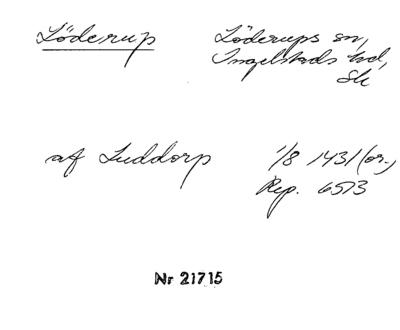 Löderup
Löderups sn,
Ingelstads hd,
Sk
af Luddorp
1/8 1431 (or.,
Rep. 6573
Nr 21715